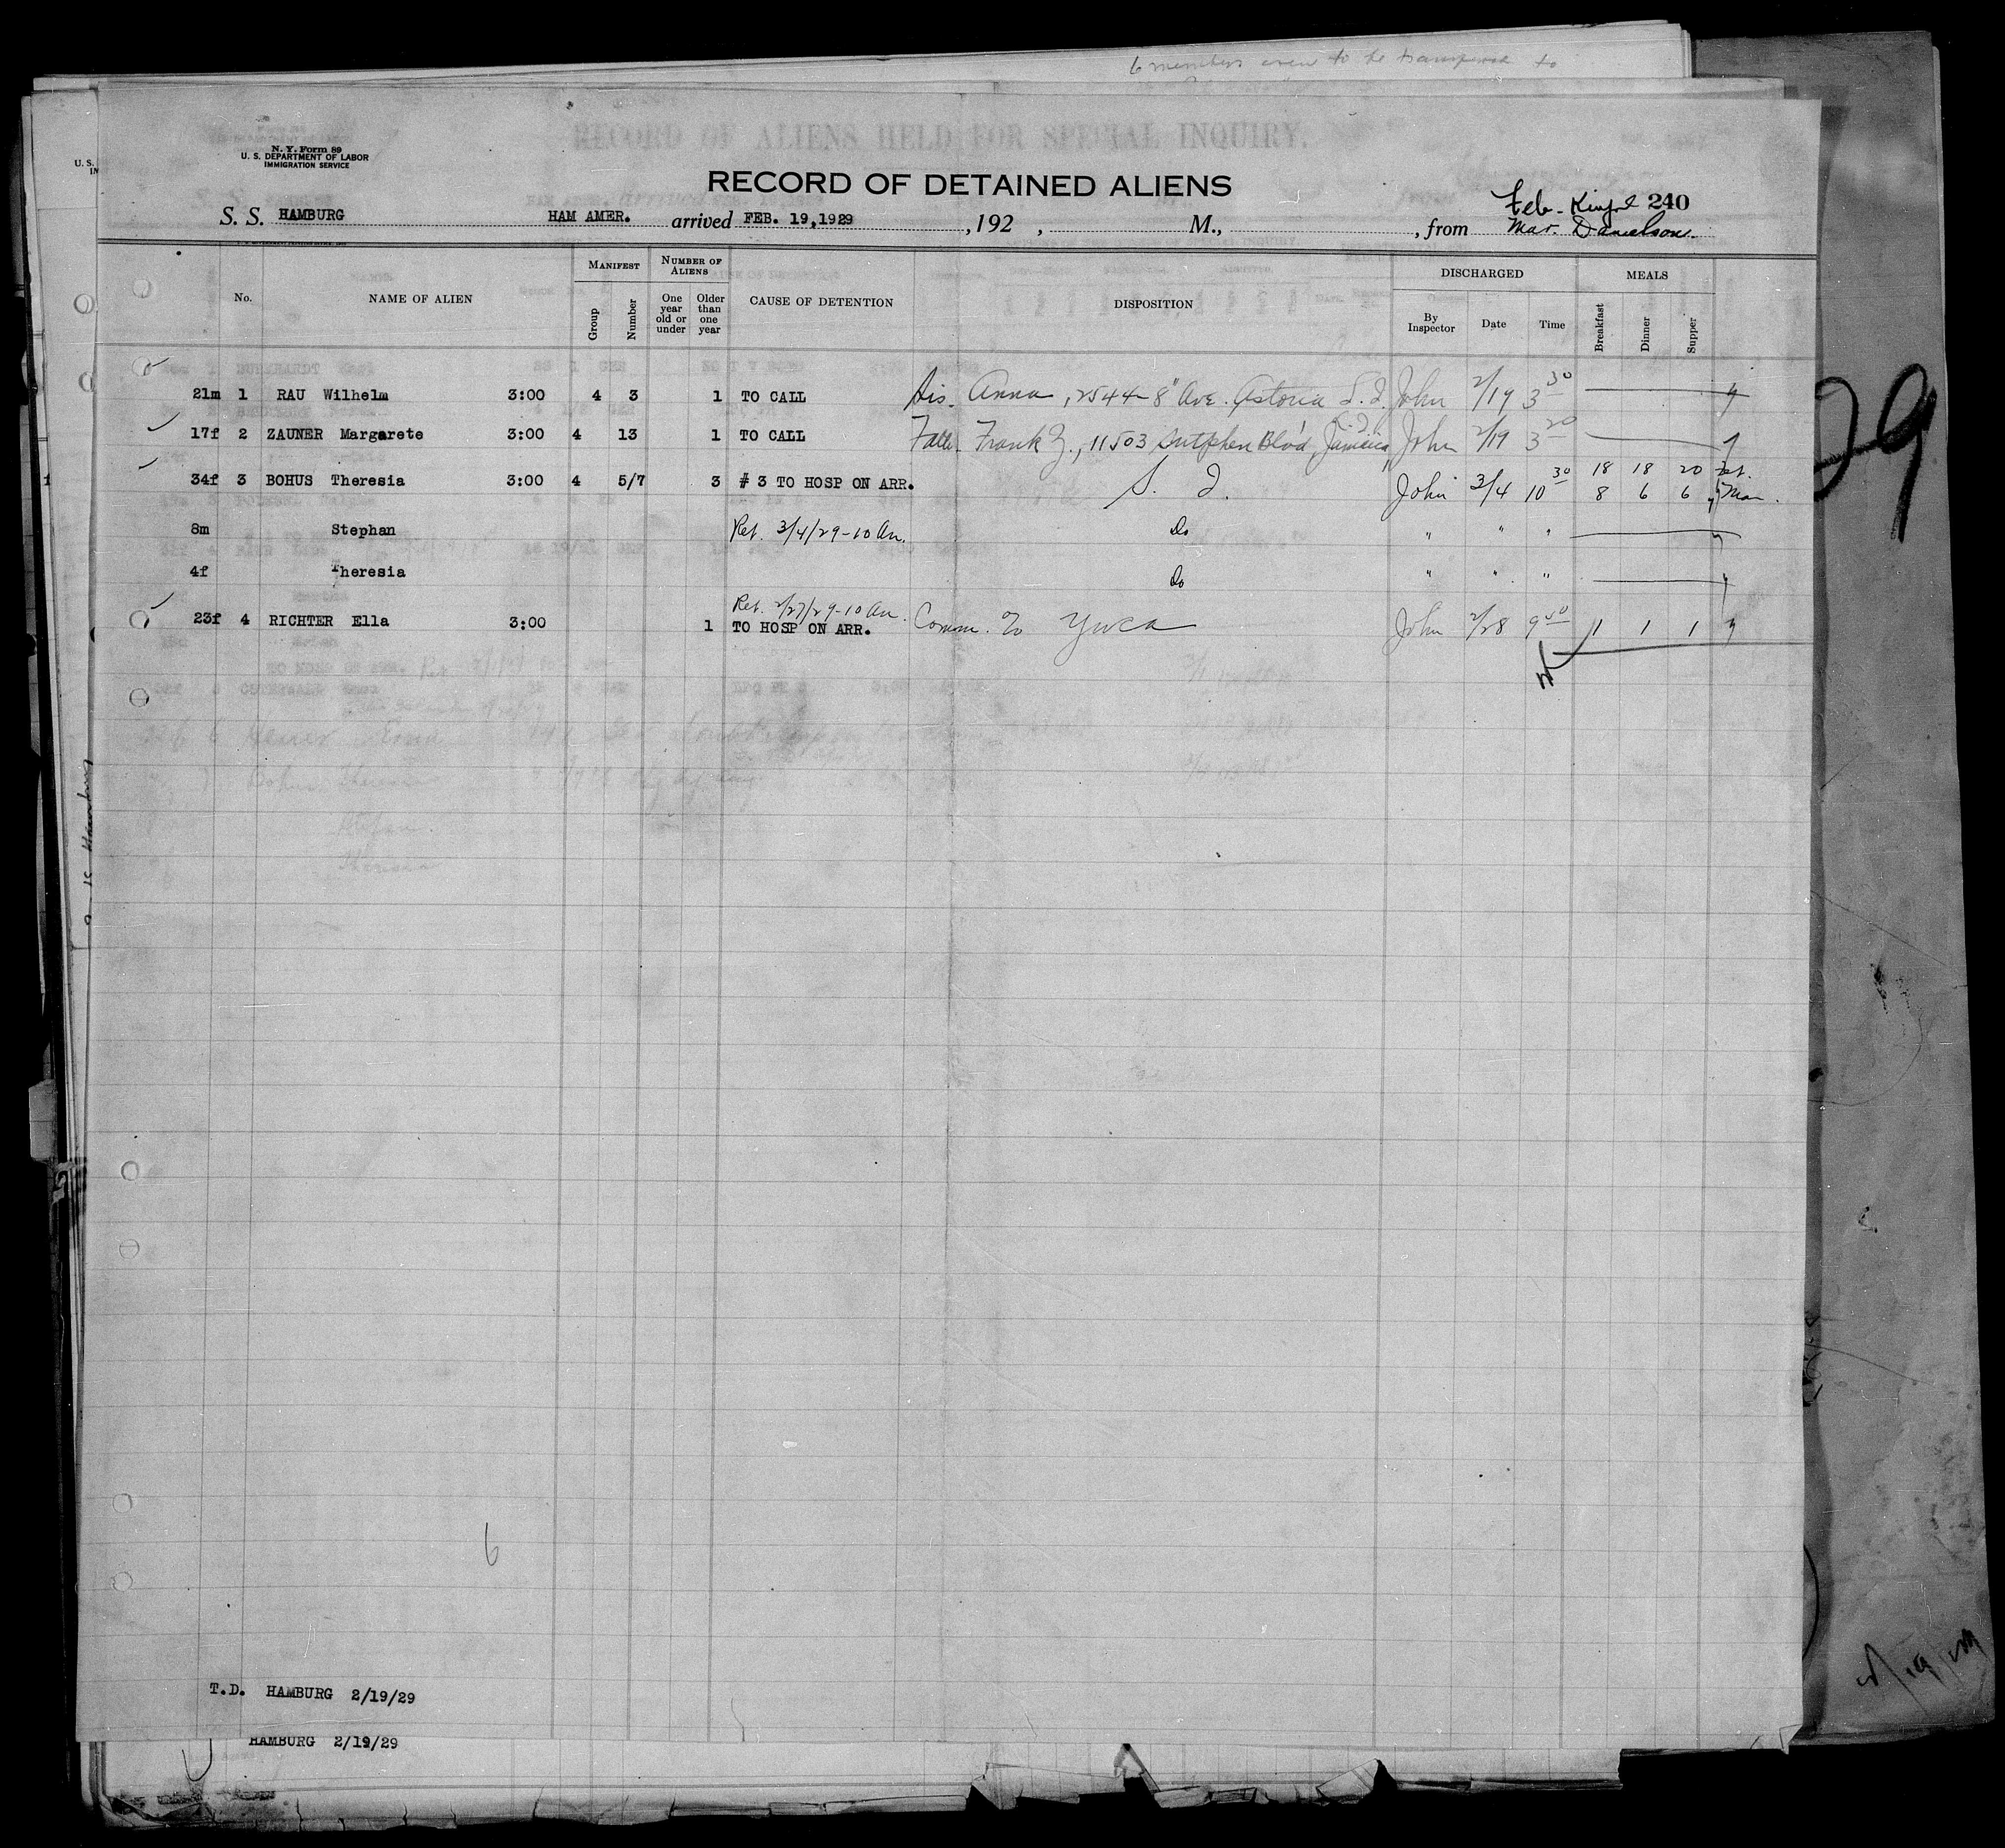 6 members crew to be transferred to
RECORD OF ALIENS HELD FOR SPECIAL INQUIRY.
U. S.
IN
N. Y. Form 89
U. S. DEPARTMENT OF LABOR
IMMIGRATION SERVICE
RECORD OF DETAINED ALIENS
Feb. 240
S. S. HAMBURG HAM AMER. arrived FEB. 19,1929 , 192 , M., , from Mar. Danielson
No. NAME OF ALIEN MANIFEST Group Number NUMBER OF ALIENS One year old or under Older than one year CAUSE OF DETENTION DISPOSITION DISCHARGED By Inspector Date Time MEALS Breakfast Dinner Supper
21m 1 RAU Wilhelm 3:00 4 3 1 TO CALL Sis. Anna, 2544-8" Ave. Astoria L.I. John 2/19 3 30
17f 2 ZAUNER Margarete 3:00 4 13 1 TO CALL Fath. Frank Z., 11503 Sutphen Blvd, Jamaica, L.I. John 2/19 3 20
34f 3 BOHUS Theresia 3:00 4 5/7 3 # 3 TO HOSP ON ARR. S. I. John 3/4 10 30 18 18 20 Feb.
8 6 6 Mar.
8m Stephan Ret. 3/4/29-10 Am. Do " " "
4f Theresia Do " " "
23f 4 RICHTER Ella 3:00 1 Ret. 2/27/29-10 Am. TO HOSP ON ARR. Comm. to YWCA John 2/28 9 50 1 1 1
6
T.D. HAMBURG 2/19/29
HAMBURG 2/19/29
29